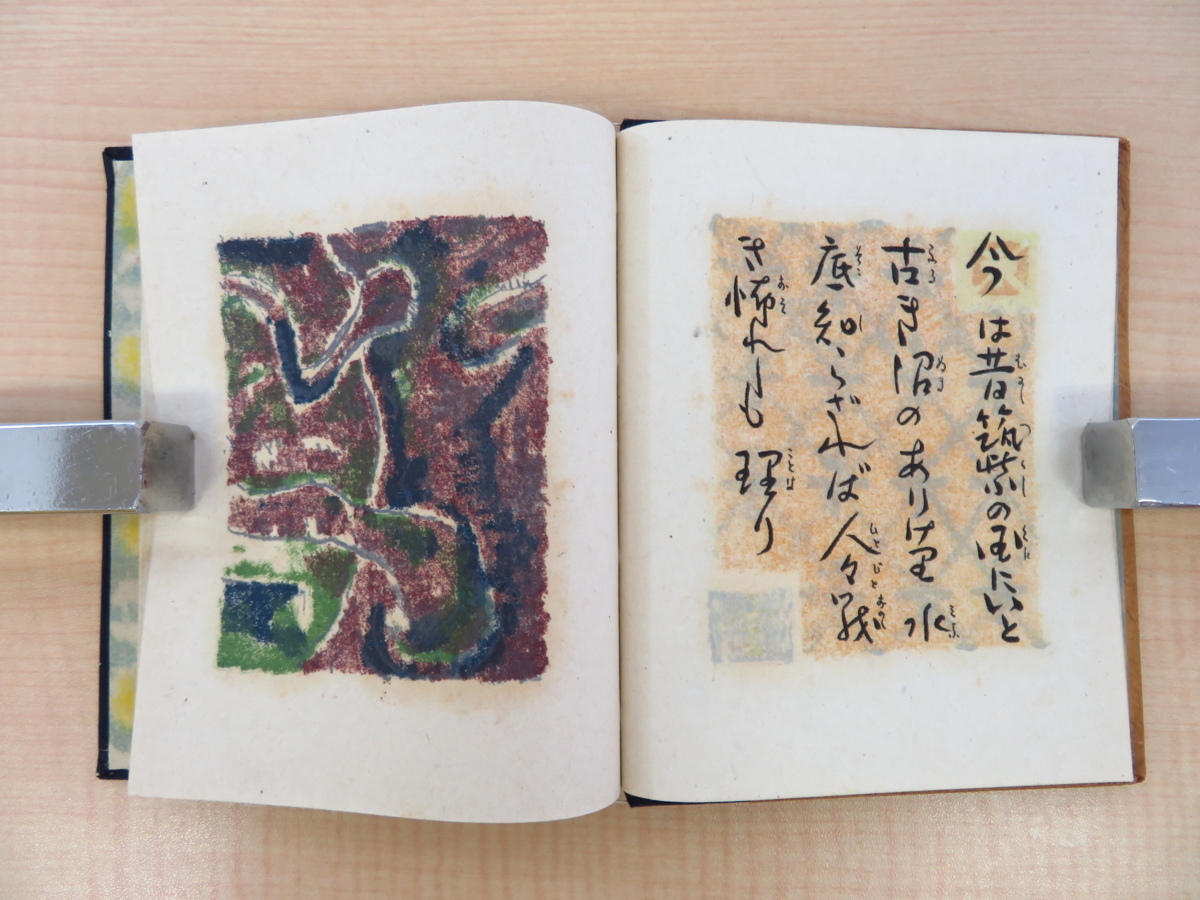 今は昔筑紫の国にいと
古き沼のありけり水
底知らざれば人々戦
き怖れしも理り